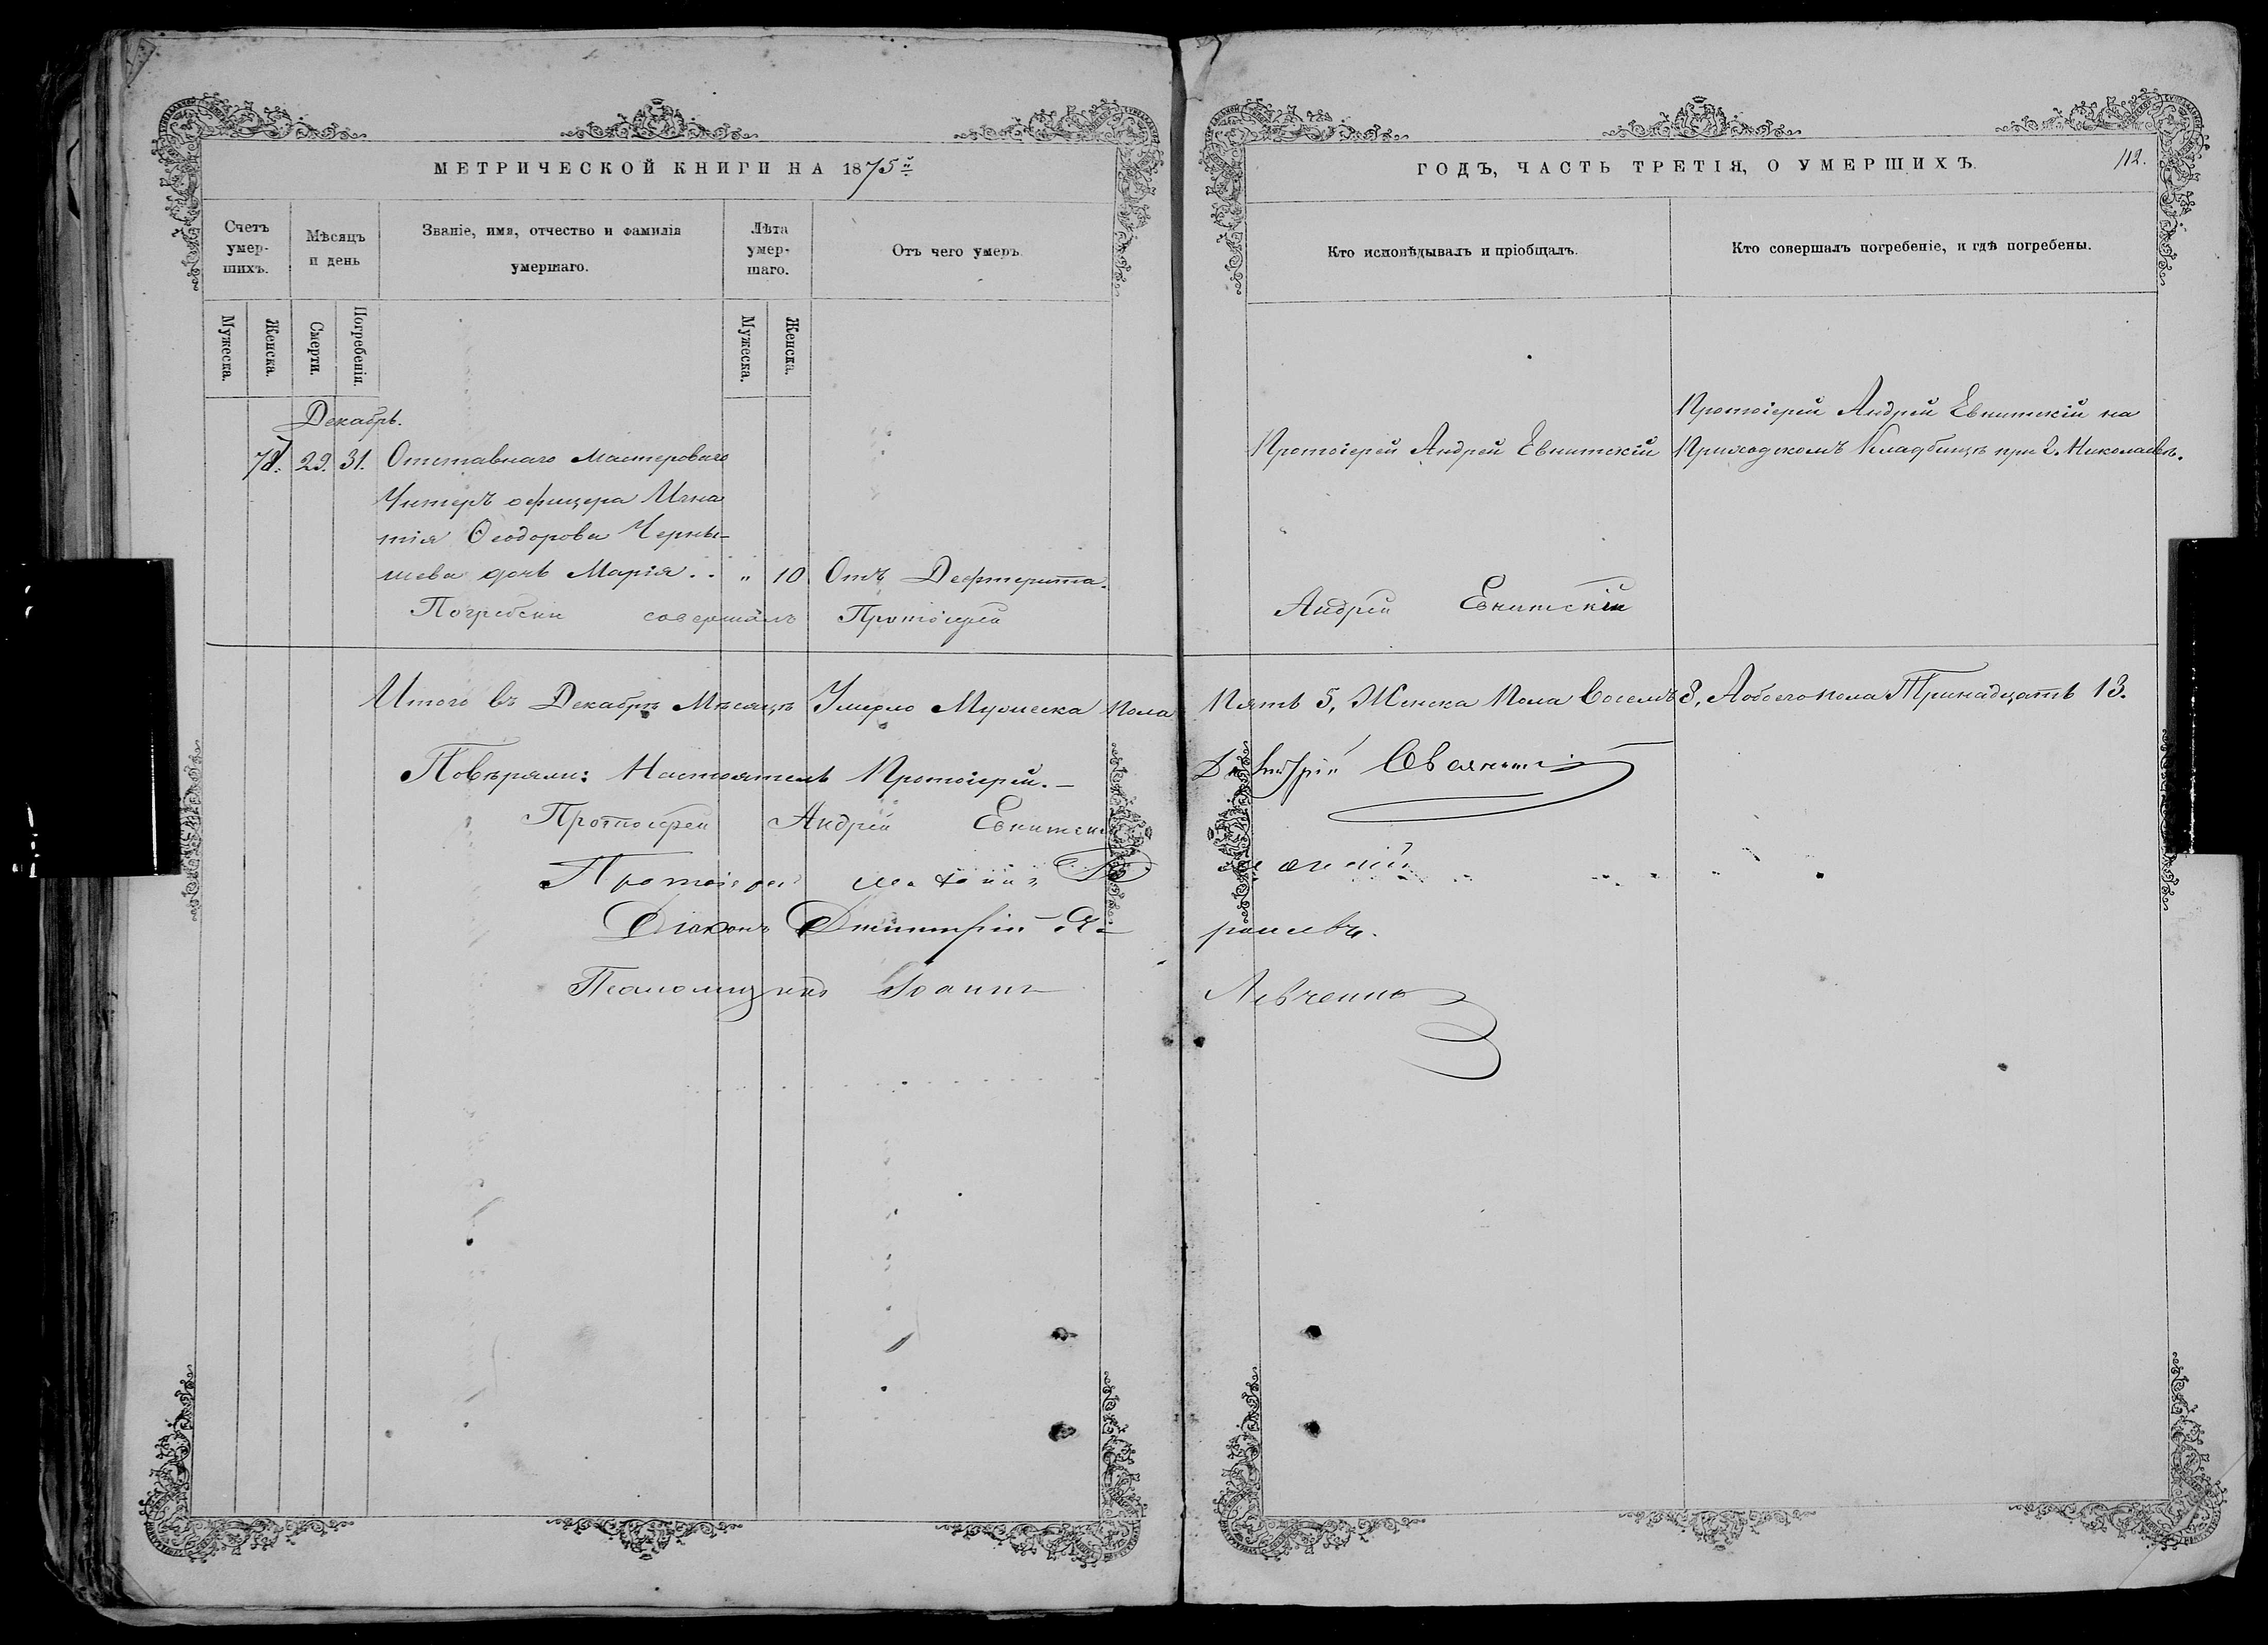 МЕТРИЧЕСКОЙ КНИГИ НА 1875й
Счетъ умер- шихъ.
Мѣсяцъ и день
Званіе, имя, отчество и фамилія умершаго.
Лѣта умер- шаго.
Отъ чего умеръ.
Мужеска.
Женска.
Смерти.
Погребенія.
Мужеска.
Женска.
Декабрь.
78. 29. 31. Отставнаго Мастероваго
Унтеръ офицера Игна
тія Ѳеодорова Черны-
шева дочь Марія . . „ 10 Отъ Дефтерита.
Погребени совершалъ Протоіерей
Итого въ Декабрѣ Мѣсяцѣ Умерло Мужеска пола
Повѣряли: Настоятель Протоіерей. —
Протоіерей Андрей Евнитскі
Протоіерей
Діаконъ Димитрій
Псаломщикъ Іоаннъ
ГОДЪ, ЧАСТЬ ТРЕТІЯ, О УМЕРШИХЪ.
112.
Кто исповѣдывалъ и пріобщалъ.
Кто совершалъ погребеніе, и гдѣ погребены.
Протоіерей Андрей Евнитскій на
Протоіерей Андрей Евнитскій Приходскомъ Кладбищѣ при г. Николаевѣ.
Андрей Евнитскій
Пять 5, Женска Пола Восемь 8, Аобоего пола Тринадцать 13.
Левченко